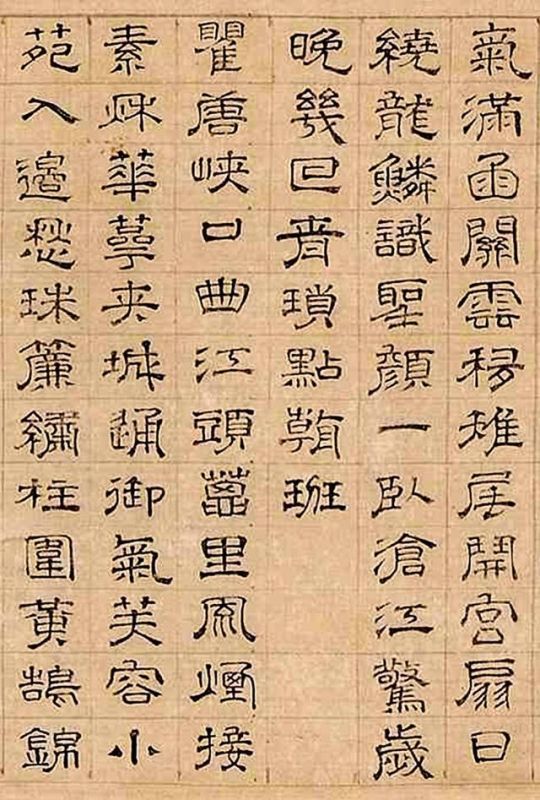 氣滿函關雲移雉尾開宮扇日
繞龍鱗識聖顏一臥滄江驚歲
晚幾回青瑣點朝班
瞿唐峽口曲江頭萬里風煙接
素秋華萼夾城通御氣芙容小
苑入邊愁珠簾繡柱圍黃鵠錦